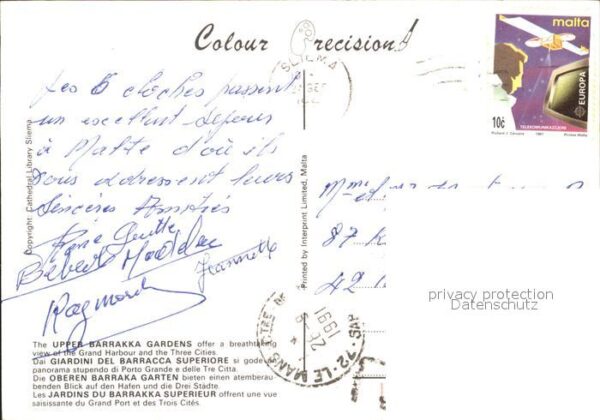 Colour Precision
SLIEMA
malta
EUROPA
TELEKOMUNIKAZZJONI
10c
1991
Les 6 cloches passent
un excellent séjour
à Malte d'où ils
vous adressent leurs
sincères Amitiés
Jeannette
Raymond
87
42
Copyright: Cathedral Library Sliema
Printed by Interprint Limited, Malta
privacy protection
Datenschutz
72-LE MANS GARE
1991
The UPPER BARRAKKA GARDENS offer a breathtaking
view of the Grand Harbour and the Three Cities.
Dai GIARDINI DEL BARRACCA SUPERIORE si gode
panorama stupendo di Porto Grande e delle Tre Citta.
Die OBEREN BARRAKA GARTEN bieten einen atemberau-
benden Blick auf den Hafen und die Drei Städte.
Les JARDINS DU BARRAKKA SUPERIEUR offrent une vue
saisissante du Grand Port et des Trois Cités.